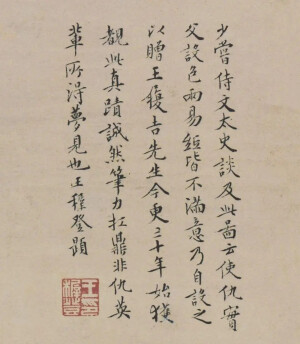 少嘗侍文太史談及此圖云使仇實
父設色兩易紙皆不滿意乃自設之
以贈王履吉先生今更三十年始獲
觀此真蹟誠然筆力扛鼎非仇英
輩所得夢見也王穉登題